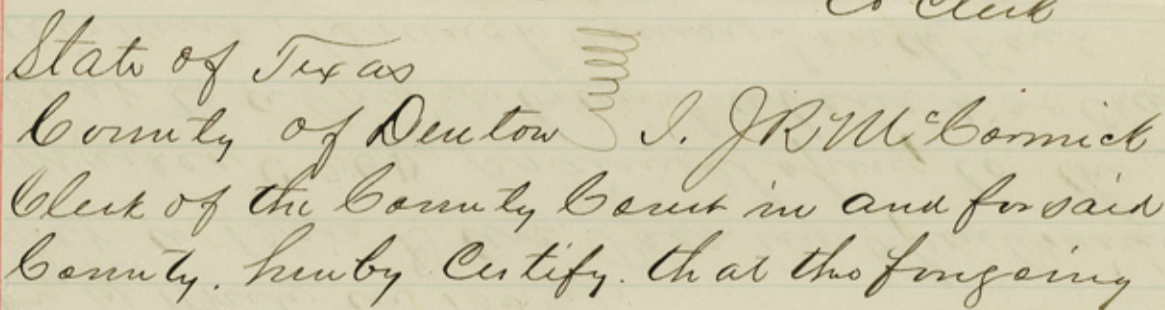 Co Clerk
State of Texas
County of Denton I. J R McCormick
Clerk of the County Court in and for said
County. hereby Certify. that the foregoing